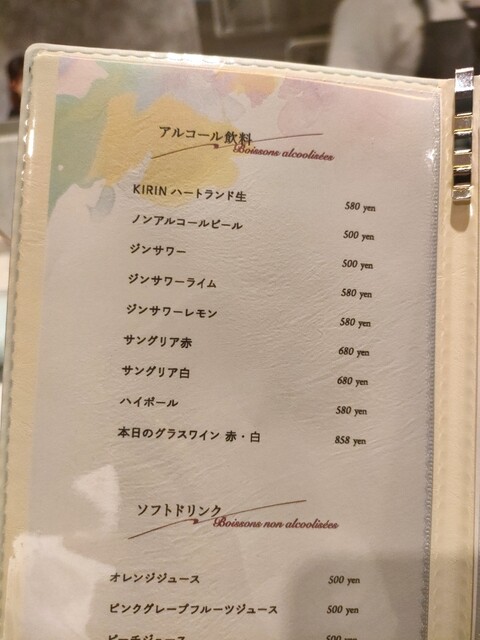 アルコール飲料
Boissons alcoolisées
KIRIN ハートランド生 580 yen
ノンアルコールビール 500 yen
ジンサワー 500 yen
ジンサワーライム 580 yen
ジンサワーレモン 580 yen
サングリア赤 680 yen
サングリア白 680 yen
ハイボール 580 yen
本日のグラスワイン 赤・白 858 yen
ソフトドリンク
Boissons non alcoolisées
オレンジジュース 500 yen
ピンクグレープフルーツジュース 500 yen
ピーチジュース 500 yen